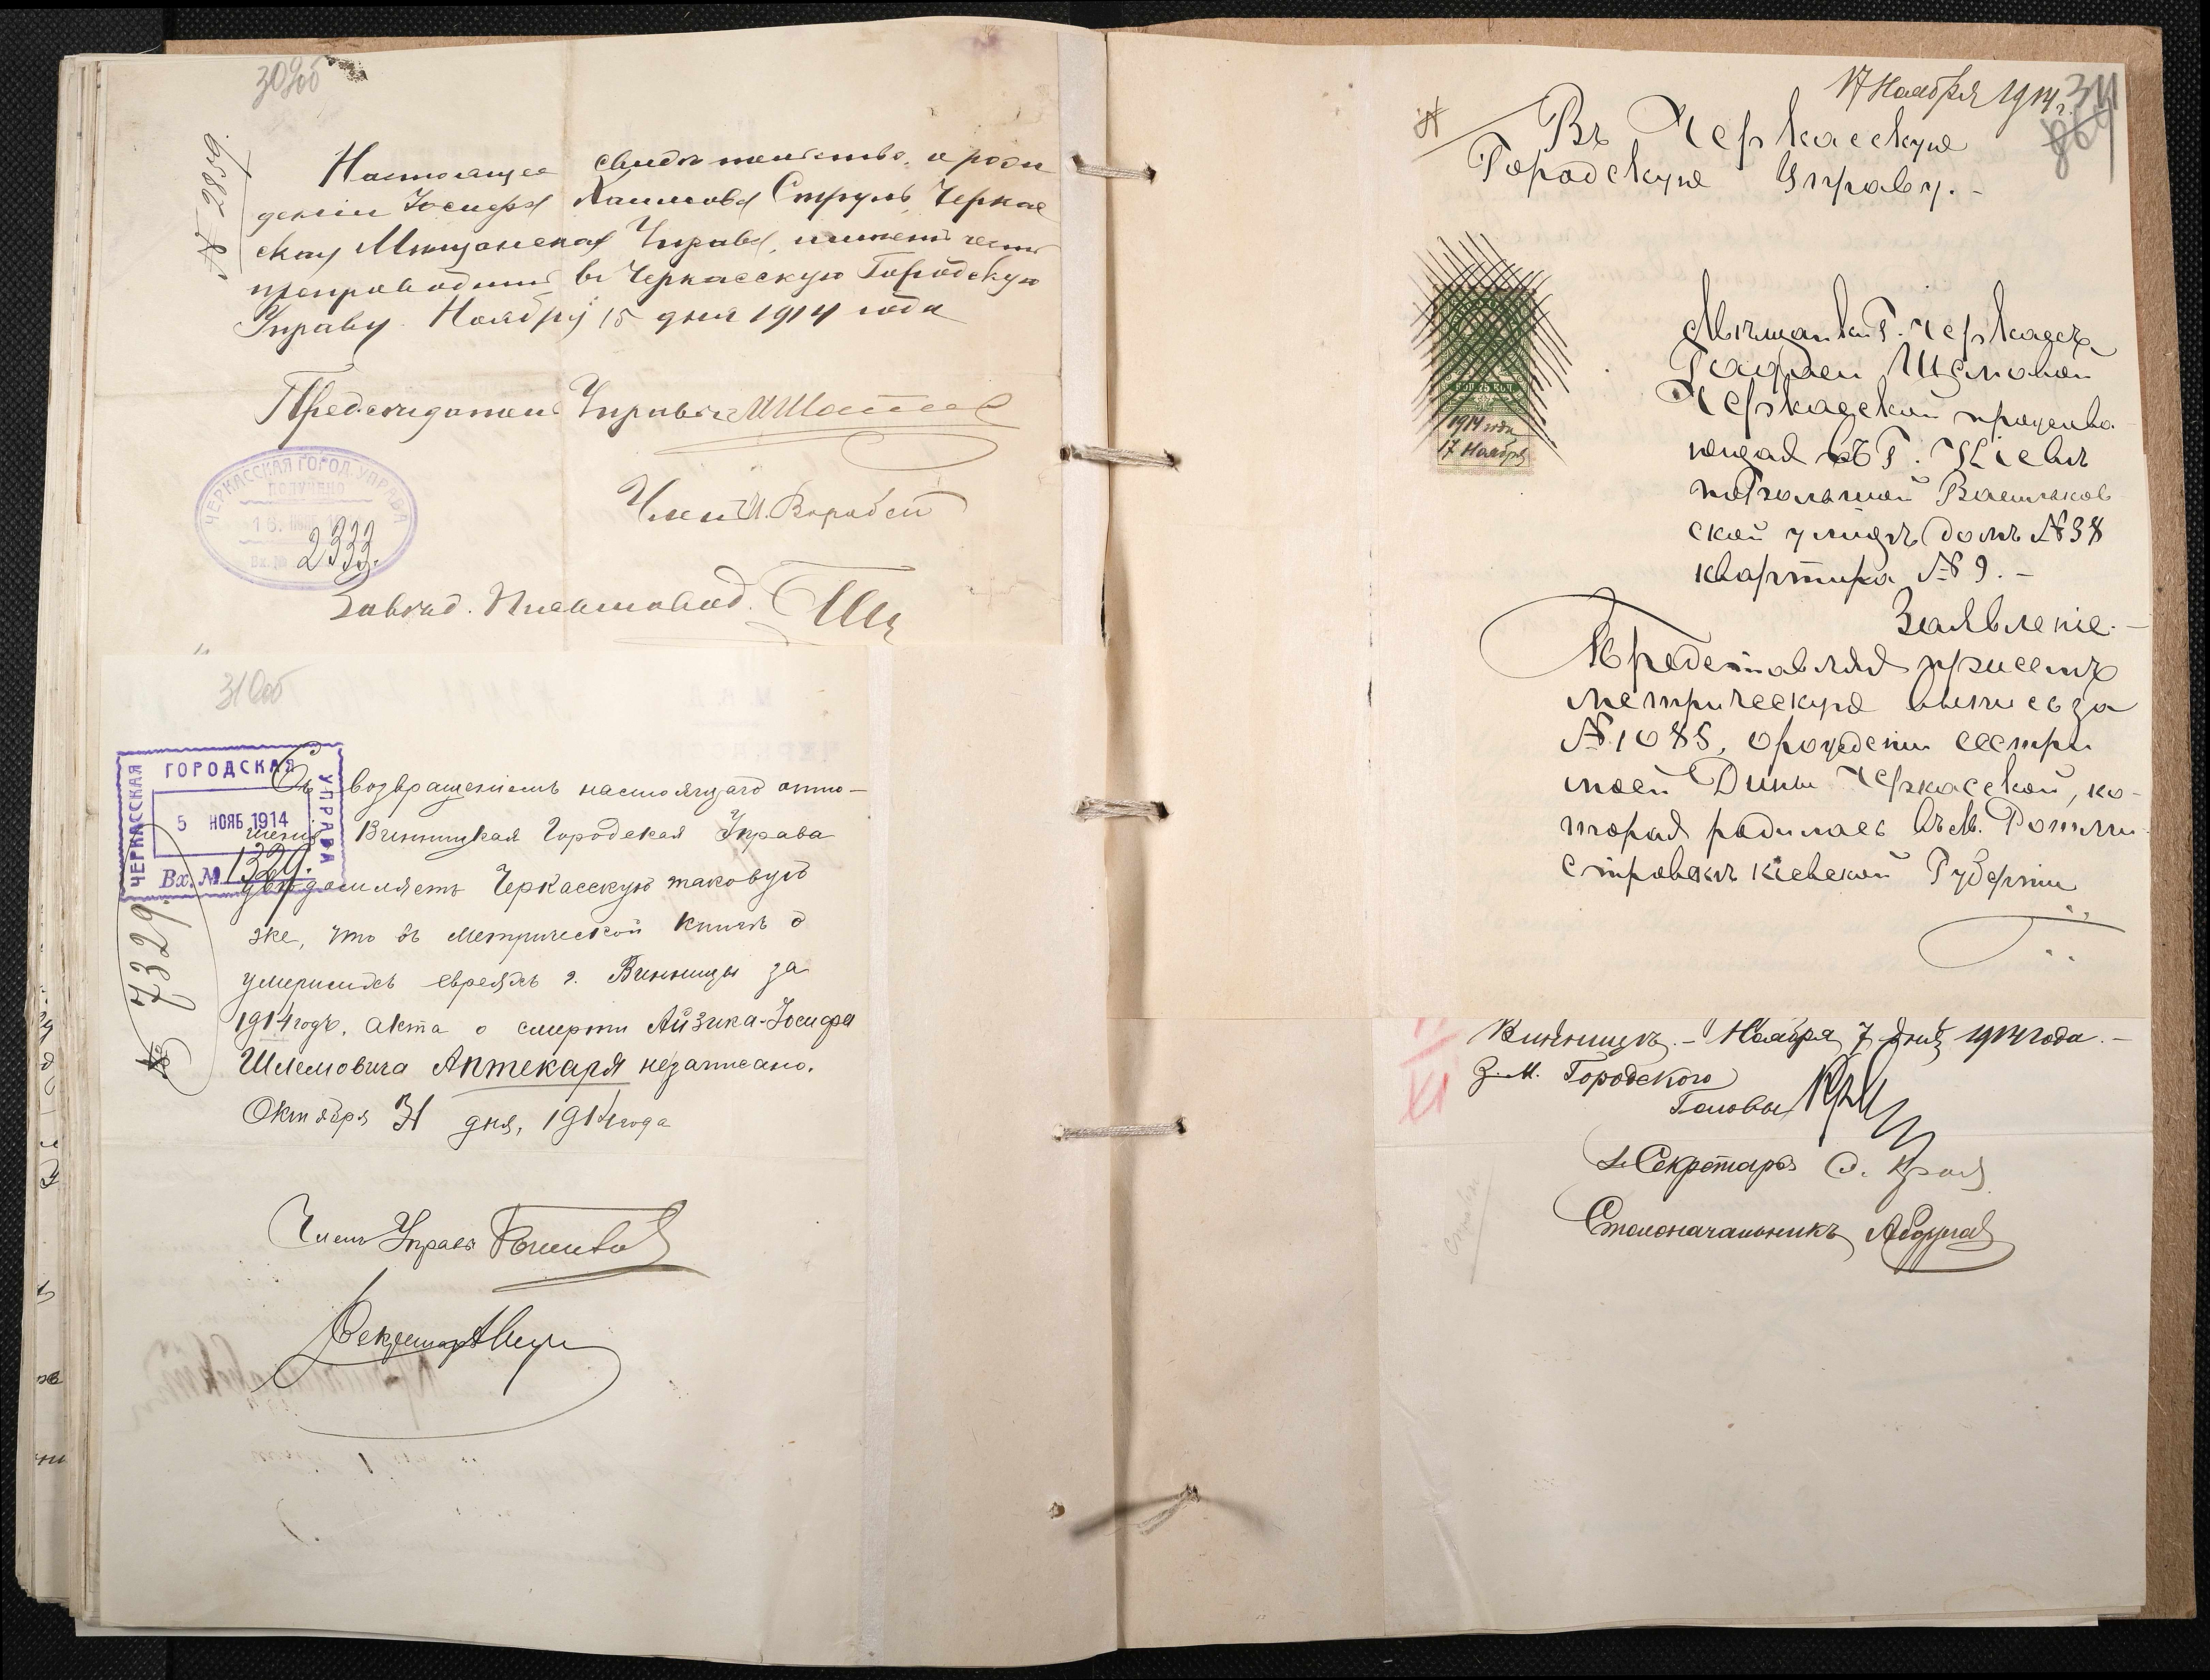 309об
№ 2859.
Настоящее свидѣтельство о рож
деніи Іосифа Хаимова Струль, Черкас
ская Мѣщанская Управа, имѣетъ честь
препроводить въ Черкасскую Городскую
Управу. Ноября 15 дня 1914 года
Предсѣдатель Управы
ЧЕРКАССКАЯ ГОРОД. УПРАВА
ПОЛУЧЕНО
Вх. № 2333.
Членъ И. Воробей
Завѣд. Письмовод.
310об
ЧЕРКАССКАЯ ГОРОДСКАЯ УПРАВА
5 НОЯБ 1914
Вх. № 1329.
№ 7329
Съ возвращеніемъ настоящаго отно-
шенія Винницкая Городская Управа
увѣдомляетъ Черкасскую таковую
же, что въ метрической книгѣ о
умершихъ евреяхъ г. Винницы за
1914 годъ, акта о смерти Айзика-Іосифа
Шлемовича Аптекаря незаписано.
Октября 31 дня, 1914 года
Членъ Управы
Секретарь
17 Ноября 1914 г.
311
Въ Черкасскую
Городскую Управу.-
КОП. 75 КОП.
1914 года
17 Ноября
Мѣщанки Г. Черкассъ
Шемовой
Черкасской прожива
ющая въ Г. Кіевѣ
по Большой Васильков
ской улицѣ домъ №38
квартира № 9.-
Заявленіе.-
Представляя присемъ
метрическую выпись за
№ 1085, о рожденіи сестры
моей Дины Черкасской, ко-
торая родилась въ м. Ротми-
стровкѣ Кіевской Губерніи
XI
Винницѣ.- Ноября 7 дня 1914 года.-
З. М. Городского
Головы
Секретарь
Столоначальникъ